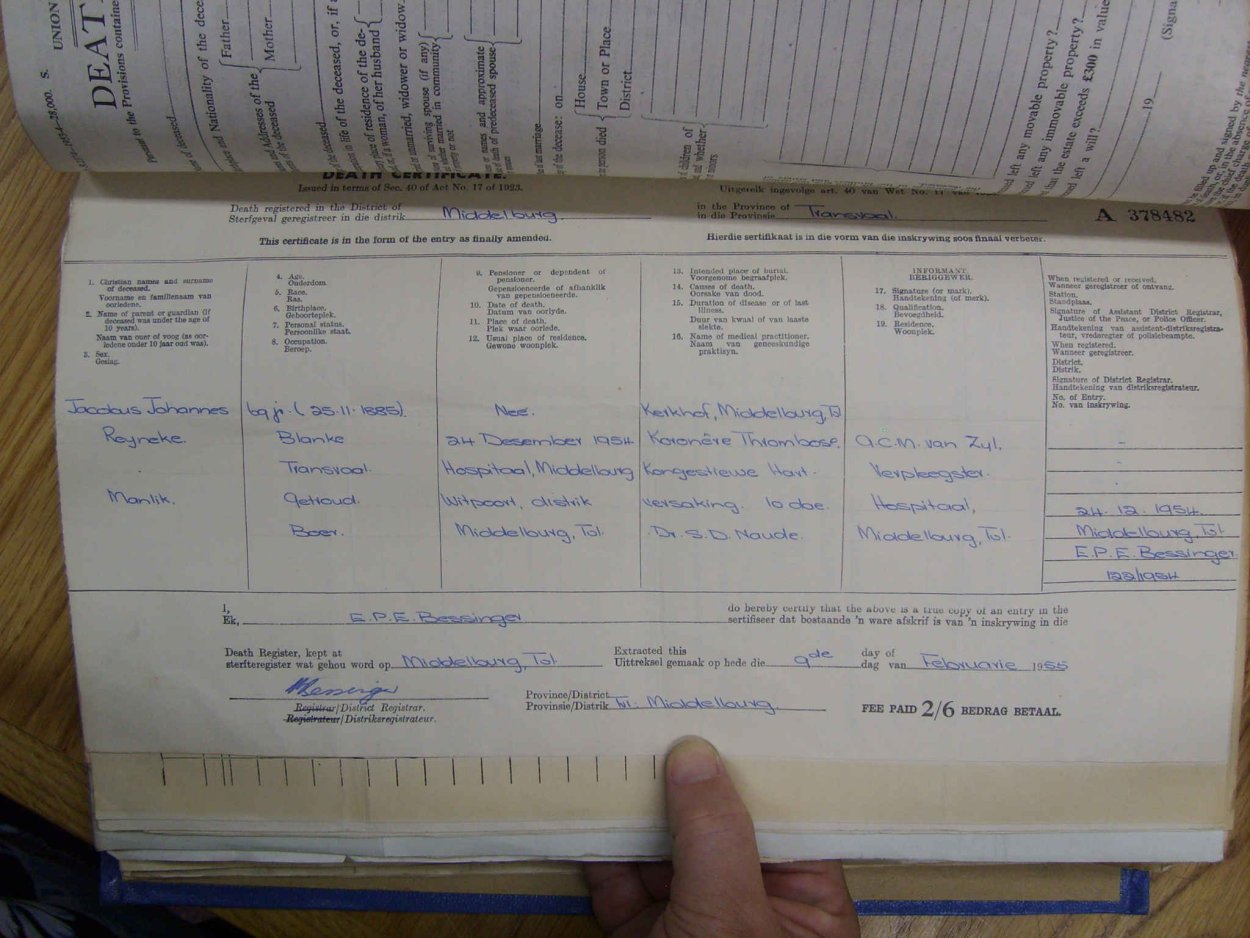 S.
UNION
DEAT
Provisions containe
Nationality of the dece
Father
Mother
Addresses of the
the deceased
of the deceased, or, if a
place of residence of the de-
if a woman, of her husband
or unmarried, widower or widow.
of surviving spouse (if any)
whether married in community
or not
names and approximate
of death of predeceased spouse
last marriage
of the decease: on
person died
House
Town or Place
District
children of
and whether
left any movable property?
left any immovable property?
that the estate exceeds £300 in value
left a will?
19
(Signa
DEATH CERTIFICATE.
Issued in terms of Sec. 40 of Act No. 17 of 1923.
Uitgereik ingevolge art. 40 van Wet No.
Death registered in the District of
Sterfgeval geregistreer in die distrik Middelburg.
in the Province of
in die Provinsie Transvaal.
A 378482
This certificate is in the form of the entry as finally amended.
Hierdie sertifikaat is in die vorm van die inskrywing soos finaal verbeter.
1. Christian names and surname
of deceased.
Voorname en familienaam van
oorledene.
2. Name of parent or guardian (if
deceased was under the age of
10 years).
Naam van ouer of voog (as oor-
ledene onder 10 jaar oud was).
3. Sex.
Geslag.
4. Age.
Ouderdom.
5. Race.
Ras.
6. Birthplace.
Geboorteplek.
7. Personal status.
Persoonlike staat.
8. Occupation.
Beroep.
9. Pensioner or dependent of
pensioner.
Gepensioeneerde of afhanklik
van gepensioeneerde.
10. Date of death.
Datum van oorlyde.
11. Place of death.
Plek waar oorlede.
12. Usual place of residence.
Gewone woonplek.
13. Intended place of burial.
Voorgenome begraafplek.
14. Causes of death.
Oorsake van dood.
15. Duration of disease or of last
illness.
Duur van kwaal of van laaste
siekte.
16. Name of medical practitioner.
Naam van geneeskundige
praktisyn.
INFORMANT
BERIGGEWER.
17. Signature (or mark).
Handtekening (of merk).
18. Qualification.
Bevoegdheid.
19. Residence.
Woonplek.
When registered or received.
Wanneer geregistreer of ontvang.
Station.
Standplaas.
Signature of Assistant District Registrar,
Justice of the Peace, or Police Officer.
Handtekening van assistent-distriksregistra-
teur, vrederegter of polisiebeampte.
When registered.
Wanneer geregistreer.
District.
Distrik.
Signature of District Registrar.
Handtekening van distriksregistrateur.
No. of Entry.
No. van inskrywing.
Jacobus Johannes
Reyneke.
Manlik.
69 jr. (25.11.1885).
Blanke
Transvaal.
Getroud.
Boer.
Nee.
24 Desember 1954
Hospitaal, Middelburg
Witpoort, distrik
Middelburg, Tvl.
Kerkhof, Middelburg, Tvl
Koronêre Thrombose.
Kongestiewe Hart-
versaking. 10 dae.
Dr. S.D. Naude.
A.C.M. van Zyl.
Verpleegster.
Hospitaal,
Middelburg, Tvl.
-
-
24.12.1954.
Middelburg, Tvl
E.P.E. Bessinger
122/1954
I,
Ek, E.P.E. Bessinger
do hereby certify that the above is a true copy of an entry in the
sertifiseer dat bostaande 'n ware afskrif is van 'n inskrywing in die
Death Register, kept at
sterfteregister wat gehou word op Middelburg, Tvl
Extracted this
Uittreksel gemaak op hede die 9de
day of
dag van Februarie 1955
Bessinger
Registrar/District Registrar.
Registrateur/Distriksregistrateur.
Province/District
Provinsie/Distrik Tvl. Middelburg.
FEE PAID 2/6 BEDRAG BETAAL.